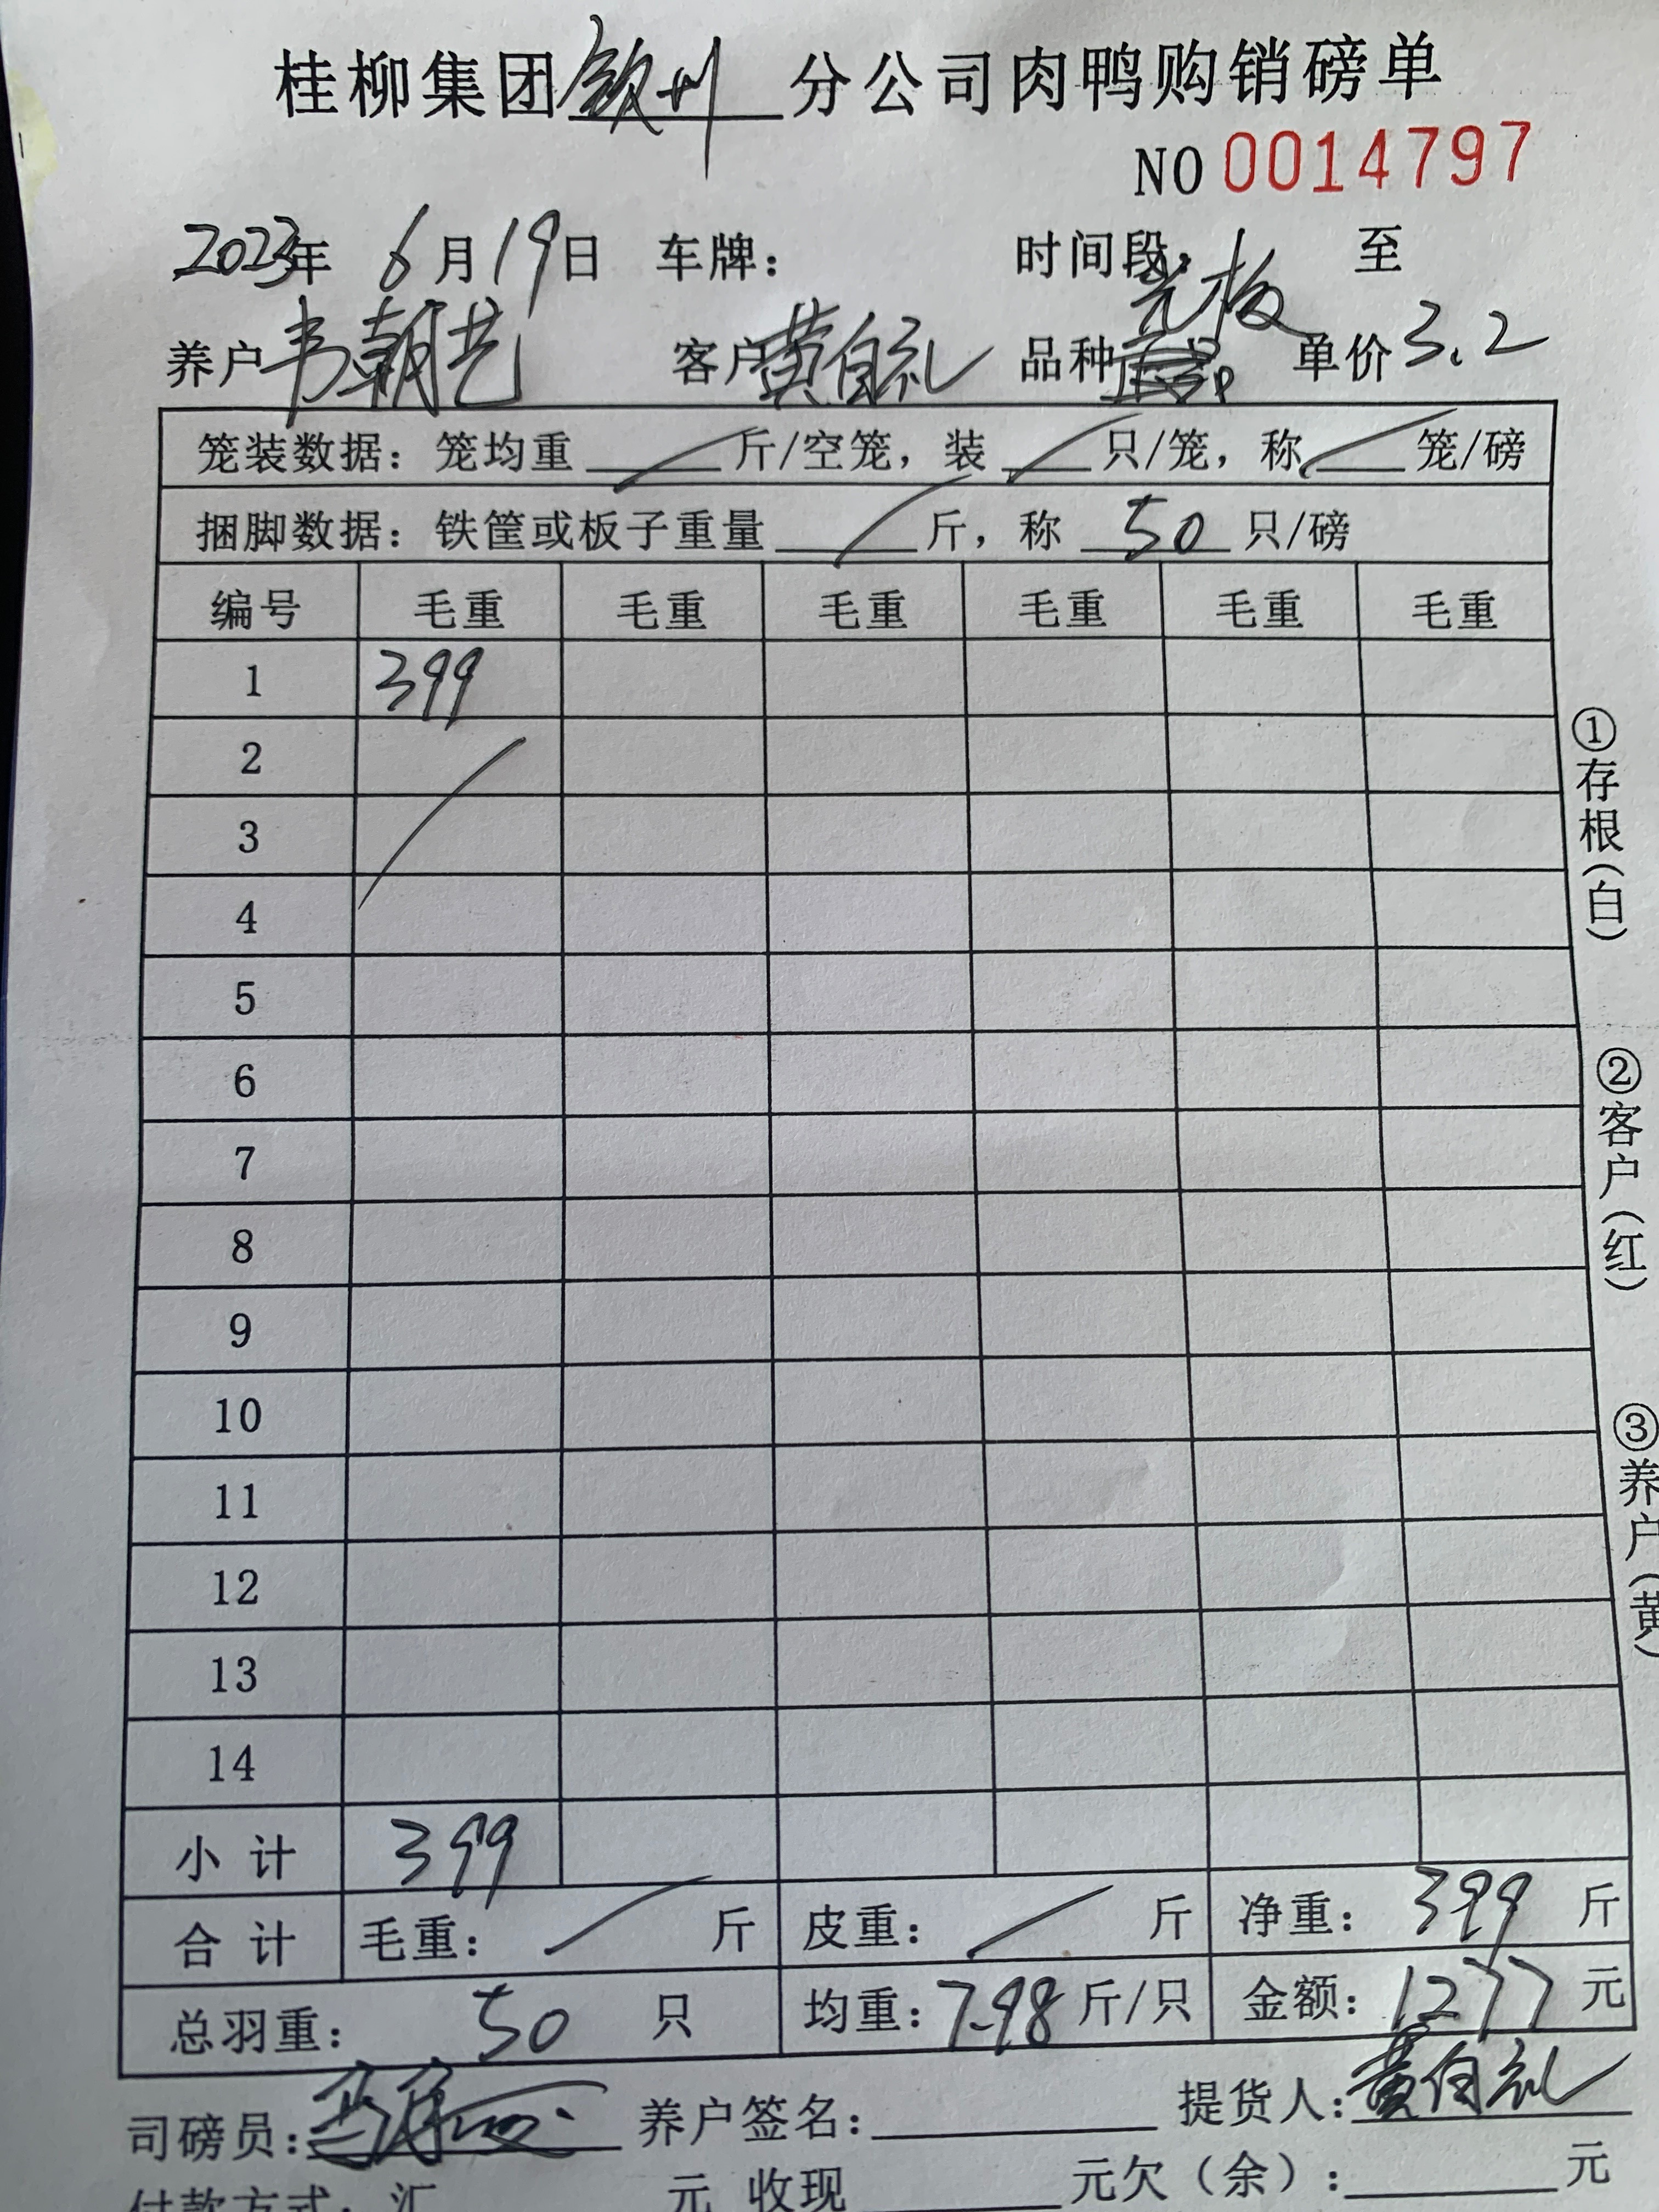 桂柳集团钦州分公司肉鸭购销磅单
NO 0014797
2023年 6月19日 车牌： 时间段： 至
光板
养户 韦朝艺 客户 黄自礼 品种 单价 3.2
笼装数据：笼均重 斤/空笼，装 只/笼，称 笼/磅
捆脚数据：铁筐或板子重量 斤，称 50 只/磅
编号 毛重 毛重 毛重 毛重 毛重 毛重
1 399
2
3
4
5
6
7
8
9
10
11
12
13
14
小计 399
合计 毛重： 斤 皮重： 斤 净重：399 斤
总羽重：50 只 均重：7.98 斤/只 金额：1277 元
司磅员： 养户签名： 提货人：黄自礼
付款方式：汇 元 收现 元欠（余）： 元
①存根（白）
②客户（红）
③养户（黄）